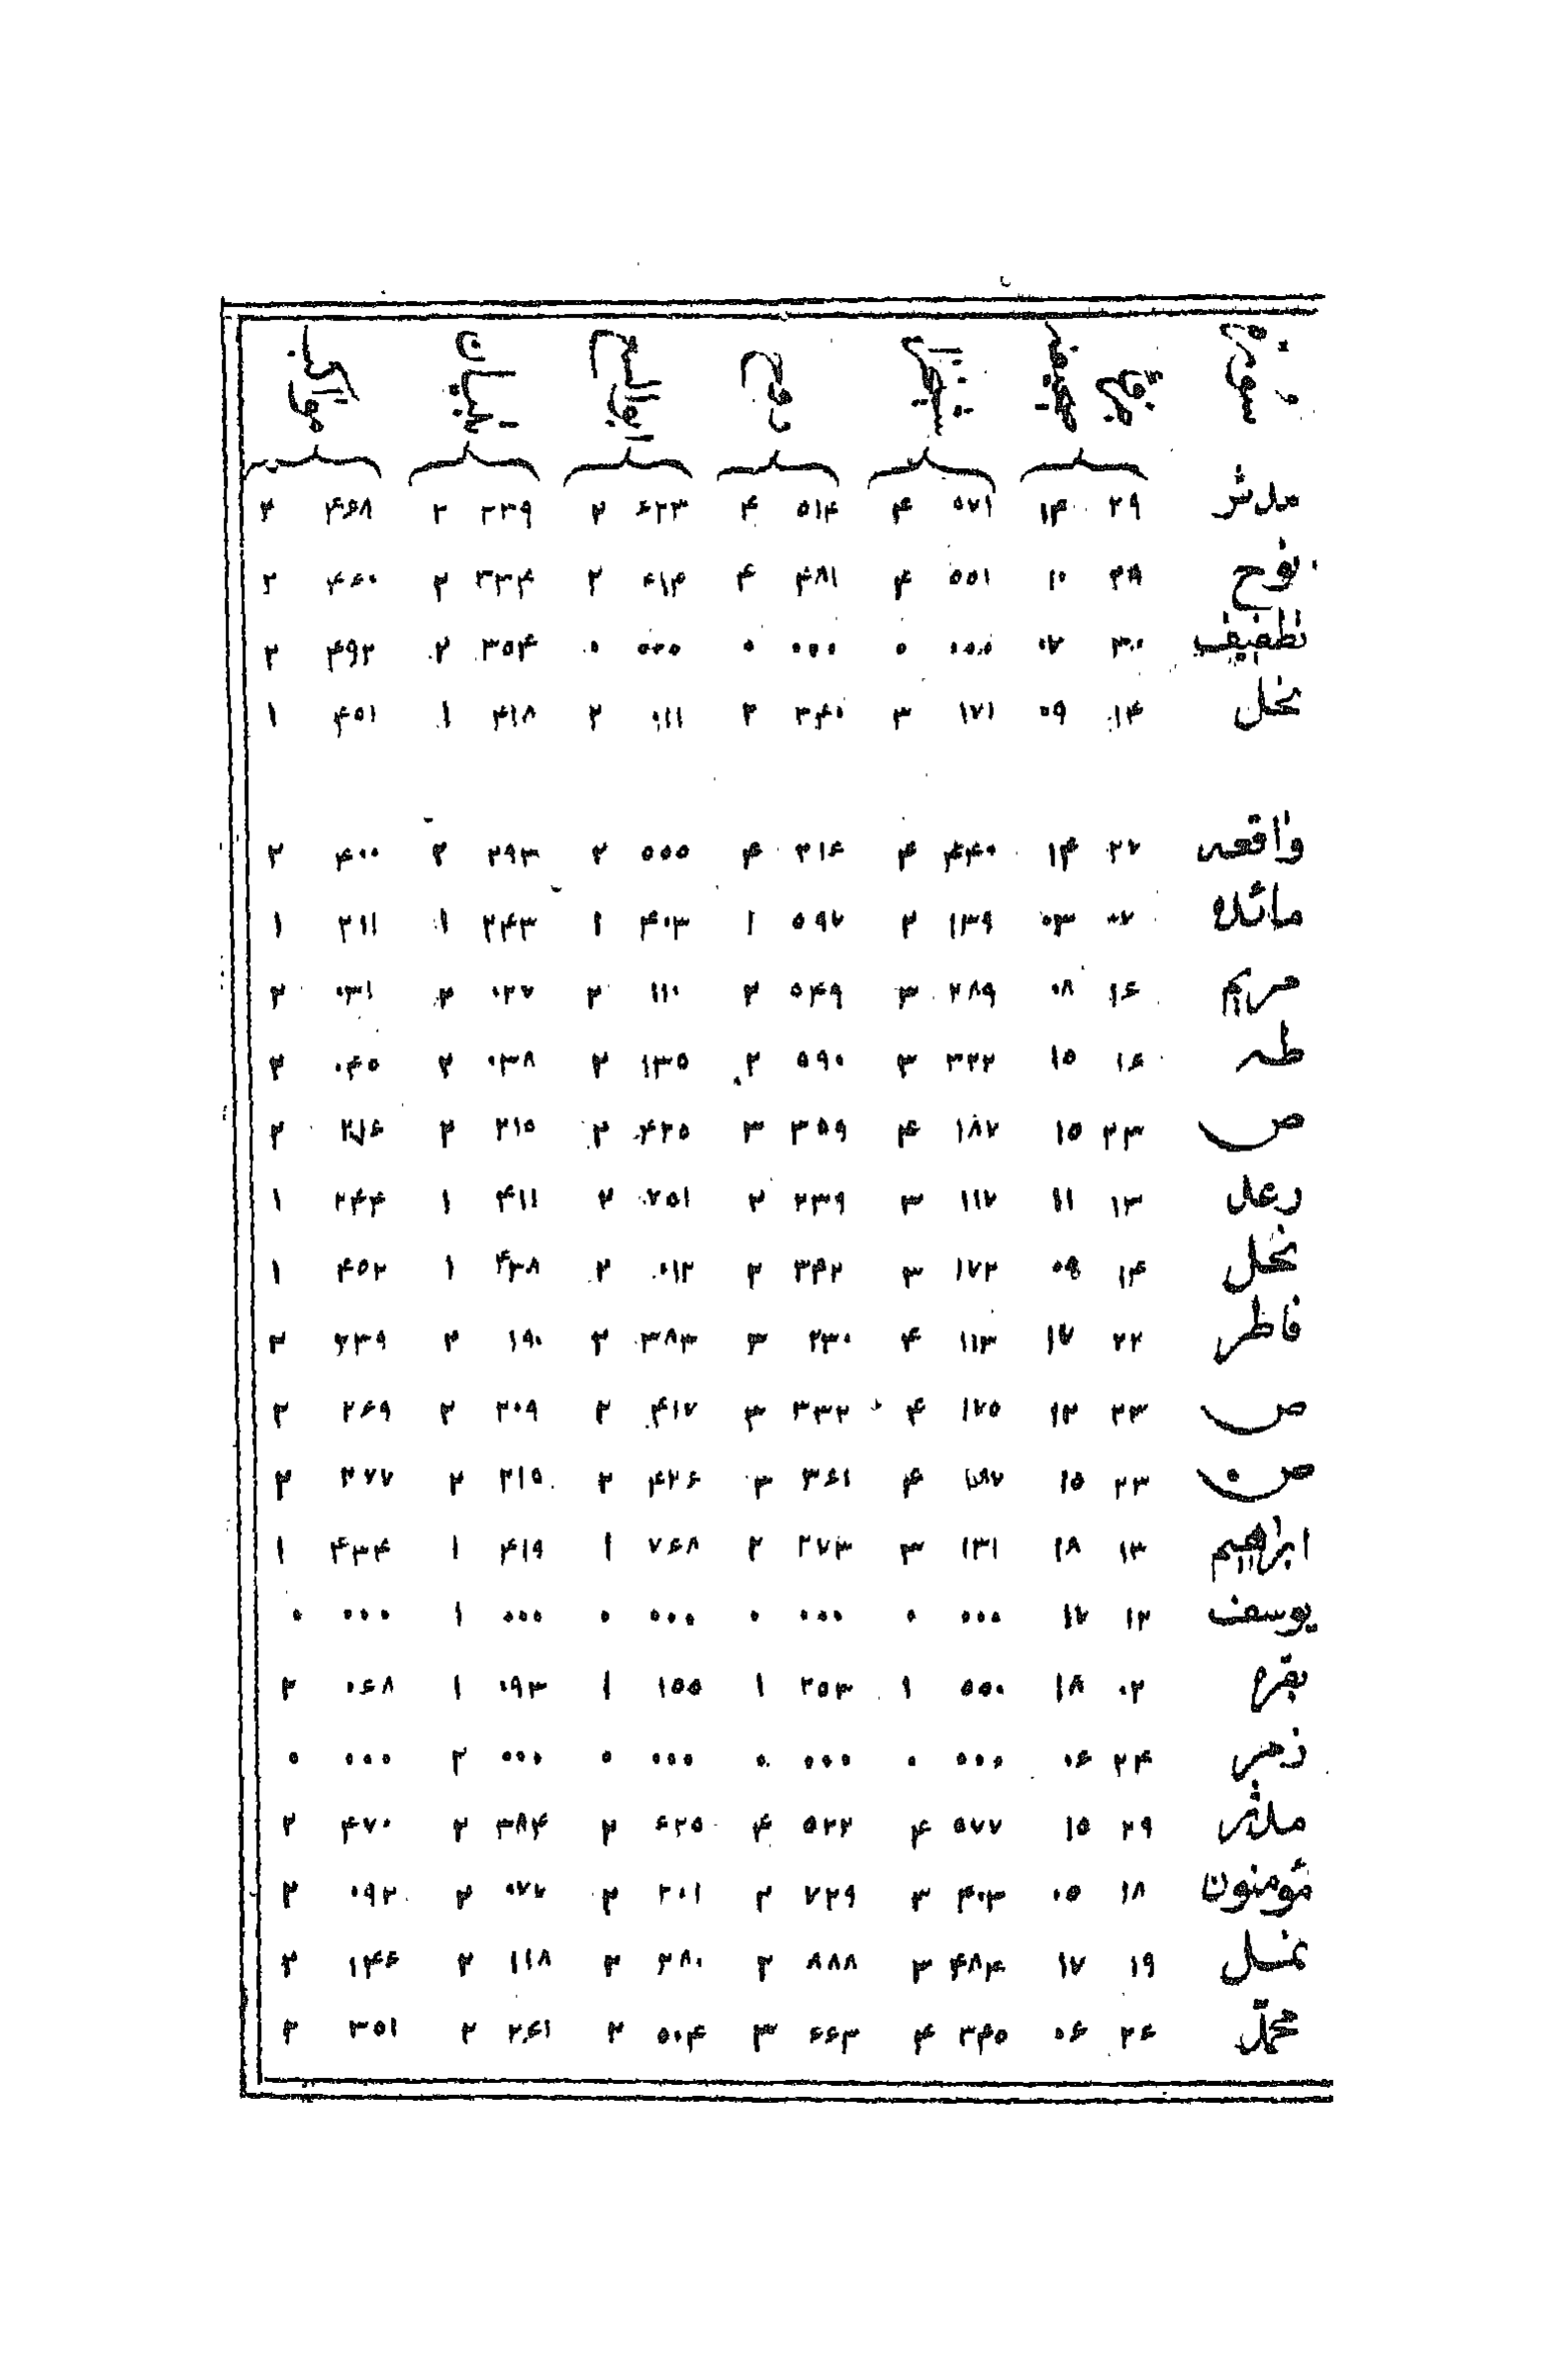 مدثر ۲۹ ۱۴ ۵۷۱ ۴ ۵۱۴ ۴ ۶۲۳ ۲ ۳۳۹ ۲ ۴۶۸ ۲
نوح ۲۹ ۱۰ ۵۵۱ ۴ ۴۸۱ ۴ ۶۱۴ ۲ ۳۳۴ ۲ ۴۶۰ ۲
تطفیف ۳۰ ۰۷ ۰۰۰ ۰ ۰۰۰ ۰ ۰۰۰ ۰ ۳۵۴ ۲ ۴۹۲ ۲
نحل ۱۴ ۰۹ ۱۷۱ ۳ ۳۴۰ ۲ ۰۱۱ ۲ ۴۱۸ ۱ ۴۵۱ ۱
واقعه ۲۷ ۱۴ ۴۴۰ ۴ ۲۱۶ ۴ ۵۵۵ ۲ ۲۹۳ ۲ ۴۰۰ ۲
مائده ۰۷ ۰۳ ۱۳۹ ۲ ۵۹۷ ۱ ۴۰۳ ۱ ۲۴۳ ۱ ۲۱۱ ۱
مریم ۱۶ ۰۸ ۲۸۹ ۳ ۵۴۹ ۲ ۱۱۰ ۲ ۰۲۷ ۲ ۰۳۱ ۲
طه ۱۶ ۱۵ ۳۲۲ ۳ ۵۹۰ ۲ ۱۳۵ ۲ ۰۳۸ ۲ ۰۴۵ ۲
ص ۲۳ ۱۵ ۱۸۷ ۴ ۳۵۹ ۳ ۴۲۵ ۲ ۲۱۵ ۲ ۲۷۶ ۲
رعد ۱۳ ۱۱ ۱۱۷ ۳ ۲۳۹ ۲ ۷۵۱ ۲ ۴۱۱ ۱ ۲۴۴ ۱
نحل ۱۴ ۰۹ ۱۷۲ ۳ ۳۴۲ ۲ ۰۱۲ ۲ ۴۳۸ ۱ ۴۵۲ ۱
فاطر ۲۲ ۱۷ ۱۱۳ ۴ ۲۳۰ ۳ ۳۸۳ ۲ ۱۹۰ ۲ ۲۳۹ ۲
ص ۲۳ ۱۲ ۱۷۵ ۴ ۳۳۲ ۳ ۴۱۷ ۲ ۲۰۹ ۲ ۲۶۹ ۲
ص ۲۳ ۱۵ ۱۸۷ ۴ ۳۶۱ ۳ ۴۲۶ ۲ ۲۱۵ ۲ ۲۷۷ ۲
ابراهیم ۱۳ ۱۸ ۱۳۱ ۳ ۲۷۳ ۲ ۷۶۸ ۱ ۴۱۹ ۱ ۴۳۴ ۱
یوسف ۱۲ ۱۷ ۰۰۰ ۰ ۰۰۰ ۰ ۰۰۰ ۰ ۰۰۰ ۱ ۰۰۰ ۰
بقره ۰۲ ۱۸ ۵۵۰ ۱ ۲۵۳ ۱ ۱۵۵ ۱ ۰۹۳ ۱ ۰۶۸ ۲
زمر ۲۴ ۰۶ ۰۰۰ ۰ ۰۰۰ ۰ ۰۰۰ ۰ ۰۰۰ ۲ ۰۰۰ ۰
مدثر ۲۹ ۱۵ ۵۷۷ ۴ ۵۲۲ ۴ ۶۲۵ ۲ ۳۸۴ ۲ ۴۷۰ ۲
مؤمنون ۱۸ ۰۵ ۴۰۳ ۳ ۷۲۹ ۲ ۲۰۱ ۲ ۰۷۷ ۲ ۰۹۲ ۲
نمل ۱۹ ۱۷ ۴۸۴ ۳ ۸۸۸ ۲ ۲۸۰ ۲ ۱۱۸ ۲ ۱۴۶ ۲
محمد ۲۶ ۰۶ ۳۴۵ ۴ ۶۶۳ ۳ ۵۰۴ ۲ ۲۶۱ ۲ ۳۵۱ ۲